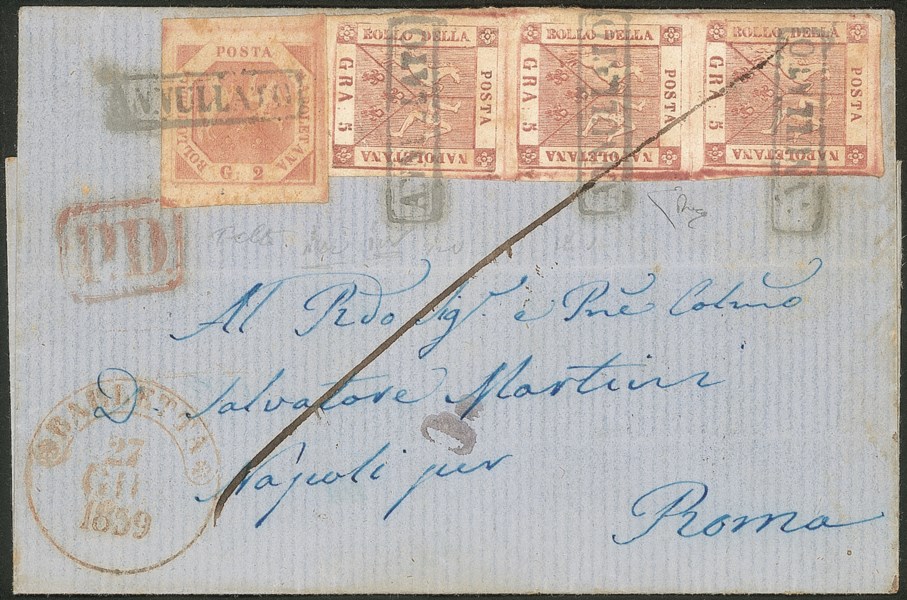 POSTA
NAPOLETANA
BOLLO
G. 2
ANNULLATO
BOLLO DELLA
POSTA
NAPOLETANA
GRA 5
ANNULLATO
BOLLO DELLA
POSTA
NAPOLETANA
GRA 5
ANNULLATO
BOLLO DELLA
POSTA
NAPOLETANA
GRA 5
ANNULLATO
P.D
Al Rdo Sigr. e Pne Colmo
D. Salvatore Martini
Napoli per
Roma
BARLETTA
27
GIU
1859